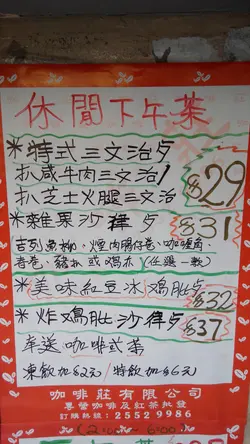 休閒下午茶
*特式三文治歺
扒咸牛肉三文治
扒芝士火腿三文治
$29
*雜果沙律歺
$31
吉列魚柳,煙肉腸仔卷,咖喱角
春卷,豬扒或鷄朩(任選一款)
*美味紅豆冰,鷄肶歺
$32
*炸鷄肶沙律歺
$37
奉送咖啡或茶
凍飲加$2元/特飲加$6元
咖啡莊有限公司
專營咖啡及紅茶批發
訂購熱線:2552 9986
(2:00-6:00)